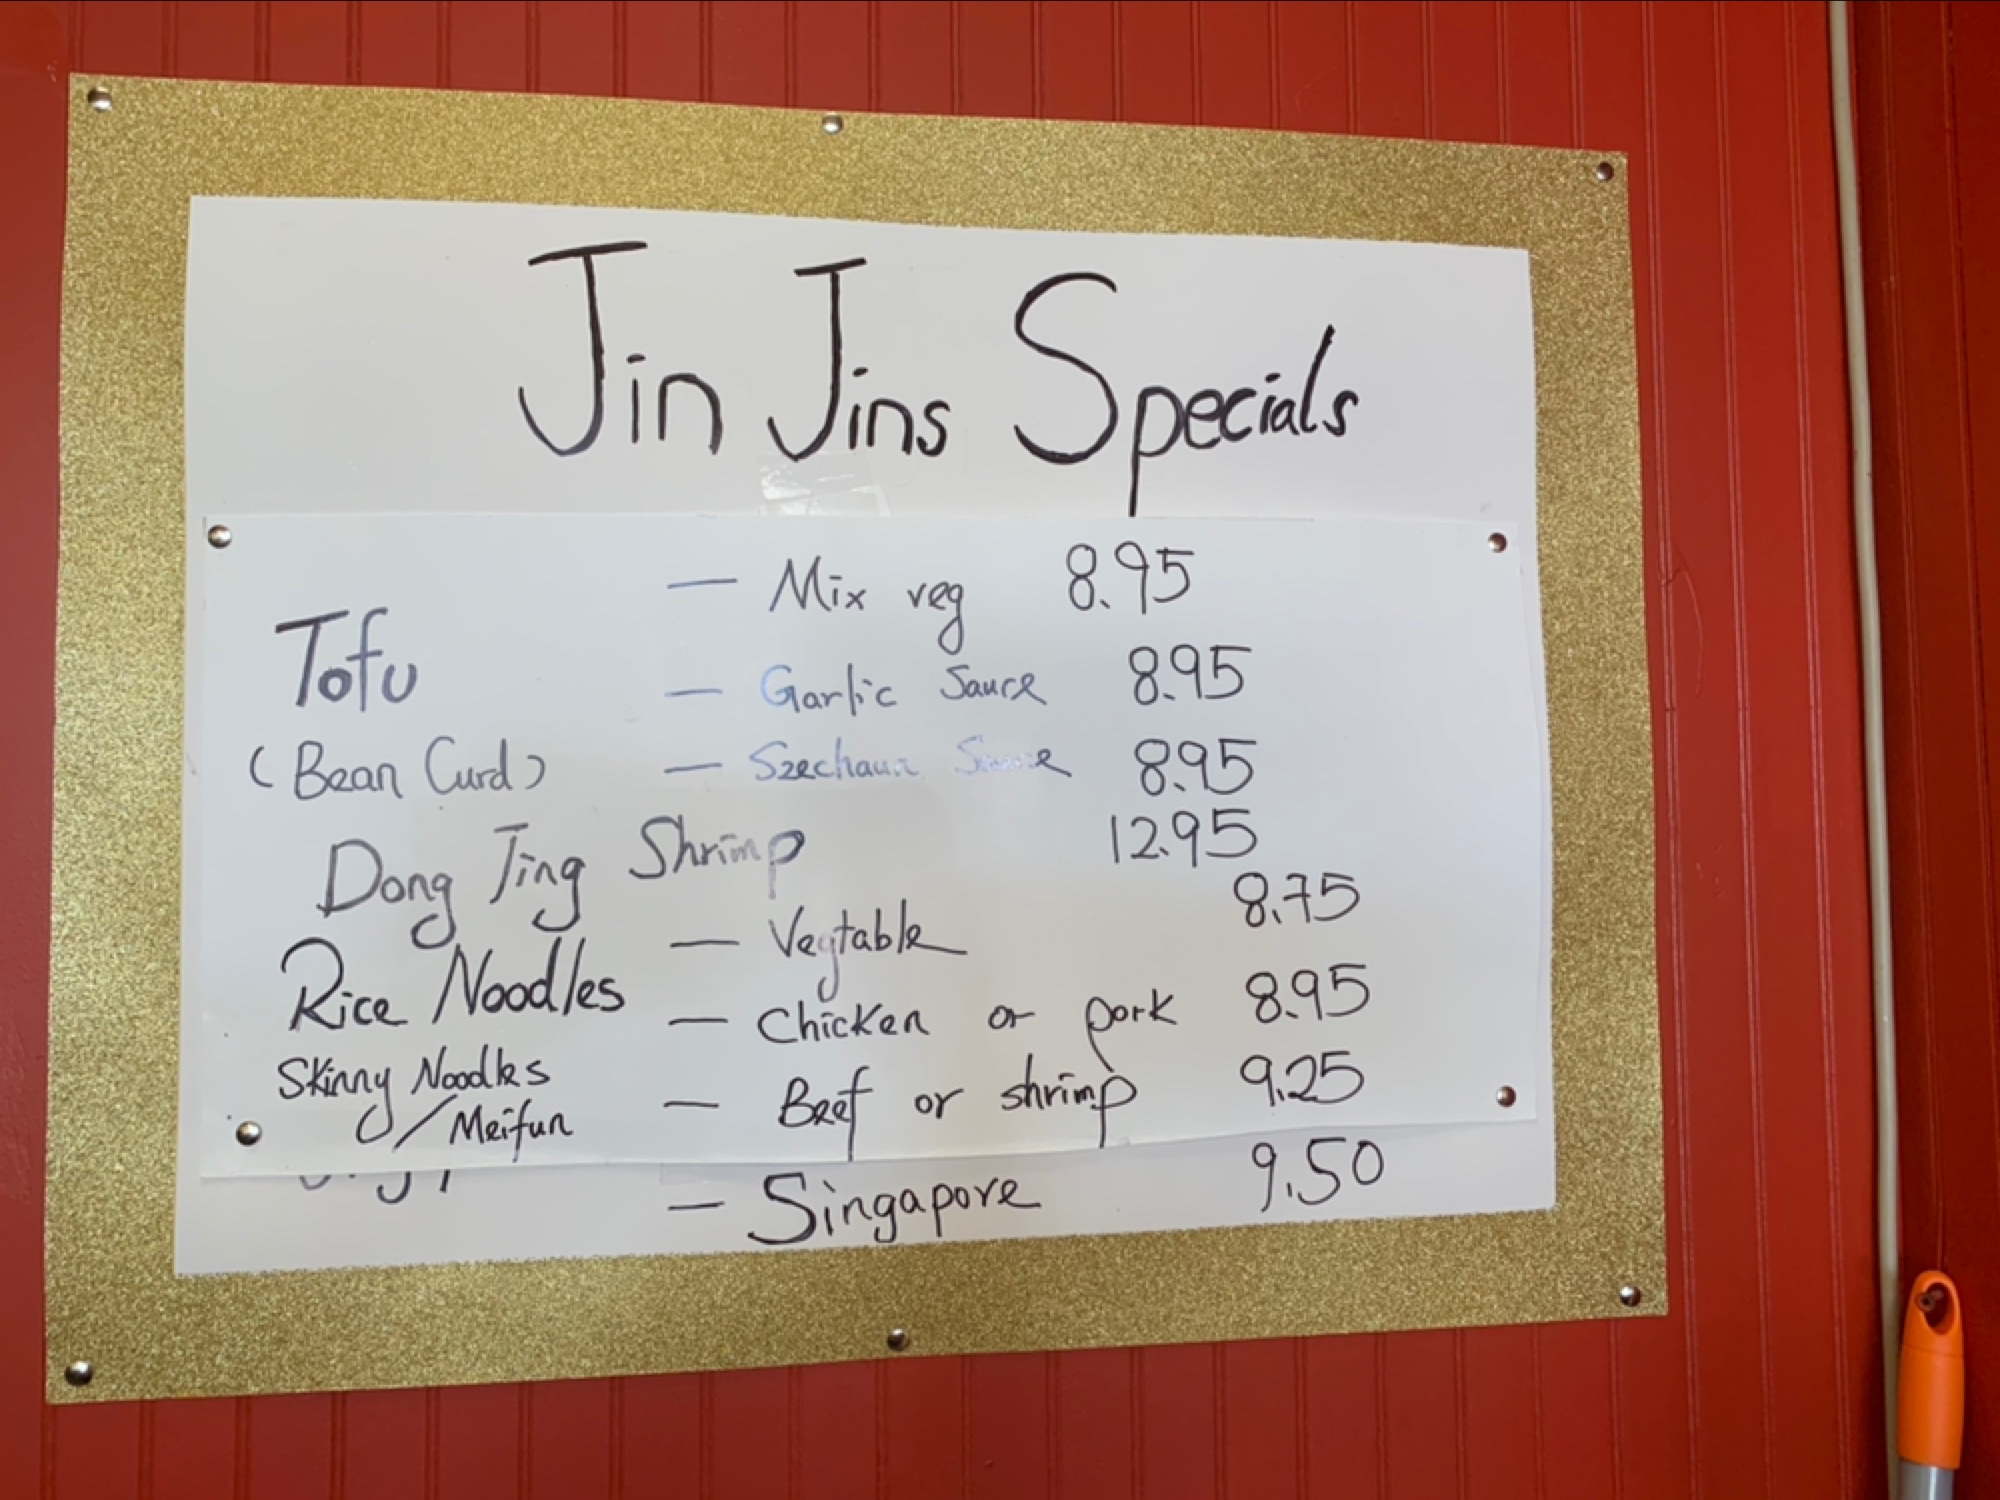 Jin Jins Specials
Tofu
(Bean Curd)
— Mix veg 8.95
— Garlic Sauce 8.95
— Szechaun Sauce 8.95
Dong Jing Shrimp 12.95
Rice Noodles
Skinny Noodles
/Meifun
— Vegtable 8.75
— Chicken or pork 8.95
— Beef or shrimp 9.25
— Singapore 9.50